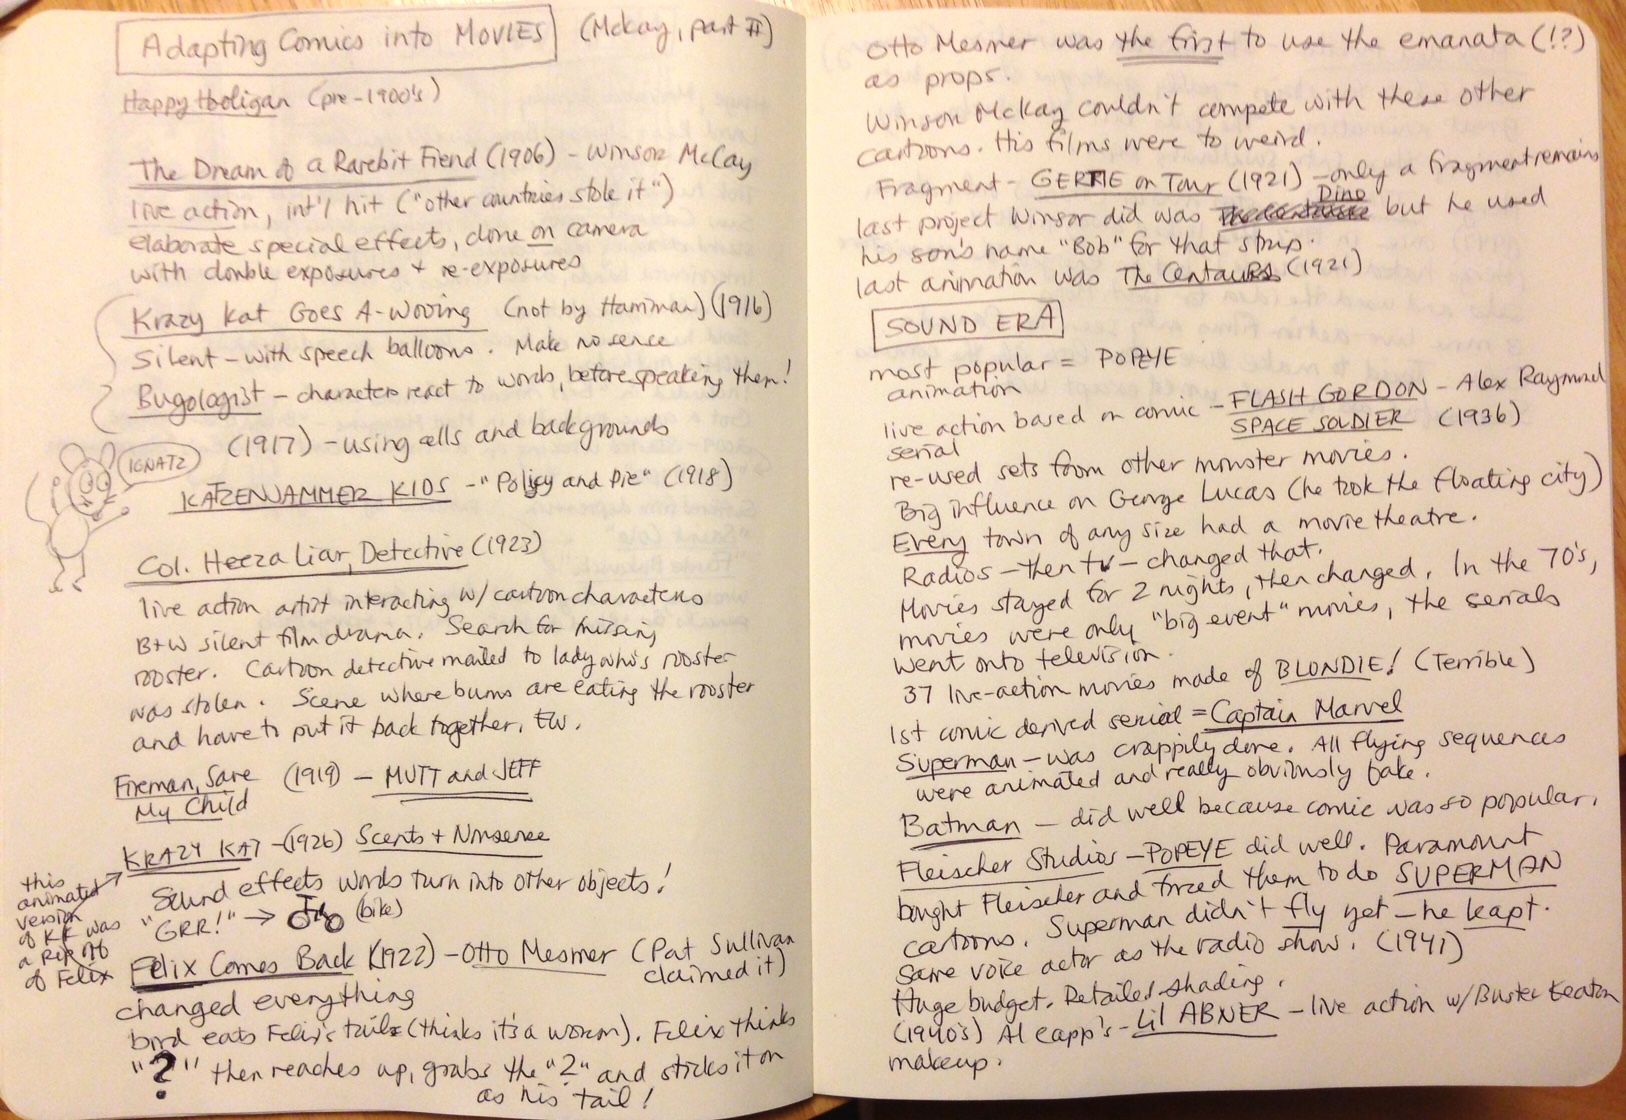 Adapting Comics into MOVIES (McKay, part II)
Happy Hooligan (pre-1900's)
The Dream of a Rarebit Fiend (1906) - Winsor McCay
live action, int'l hit ("other countries stole it")
elaborate special effects, done on camera
with double exposures + re-exposures
Krazy Kat Goes A-Wooing (not by Harriman) (1916)
Silent - with speech balloons. Make no sense
Bugologist - characters react to words, before speaking them!
(1917) - using cells and backgrounds
IGNATZ
KATZENJAMMER KIDS - "Policy and Pie" (1918)
Col. Heeza Liar, Detective (1923)
live action artist interacting w/ cartoon characters
B+W silent film drama. Search for missing
rooster. Cartoon detective mailed to lady who's rooster
was stolen. Scene where bums are eating the rooster
and have to put it back together. EW.
Fireman, Save (1919) - MUTT and JEFF
My Child
KRAZY KAT - (1926) Scents + Nonsense
this
animated
version
of KK was
a RIP OFF
of Felix
Sound effects words turn into other objects!
"GRR!" → (bike)
Felix Comes Back (1922) - Otto Mesmer (Pat Sullivan
claimed it)
changed everything
bird eats Felix's tail (thinks it's a worm). Felix thinks
"?" then reaches up, grabs the "?" and sticks it on
as his tail!
Otto Mesmer was the first to use the emanata (!?)
as props.
Winsor McKay couldn't compete with these other
cartoons. His films were to weird.
Fragment - GERTIE on Tour (1921) - only a fragment remains
last project Winsor did was Dino but he used
his son's name "Bob" for that strip.
last animation was The Centaurs (1921)
SOUND ERA
most popular = POPEYE
animation
live action based on comic - FLASH GORDON - Alex Raymond
serial SPACE SOLDIER (1936)
re-used sets from other monster movies.
Big influence on George Lucas (he took the floating city)
Every town of any size had a movie theatre.
Radios - then tv - changed that.
Movies stayed for 2 nights, then changed. In the 70's,
movies were only "big event" movies, the serials
went onto television.
37 live-action movies made of BLONDIE! (Terrible)
1st comic derived serial = Captain Marvel
Superman - was crappily done. All flying sequences
were animated and really obviously fake.
Batman - did well because comic was so popular.
Fleischer Studios - POPEYE did well. Paramount
bought Fleischer and forced them to do SUPERMAN
cartoons. Superman didn't fly yet - he leapt.
Same voice actor as the radio show. (1941)
Huge budget. Detailed shading.
(1940's) Al Capp's - Lil ABNER - live action w/ Buster Keaton
makeup.